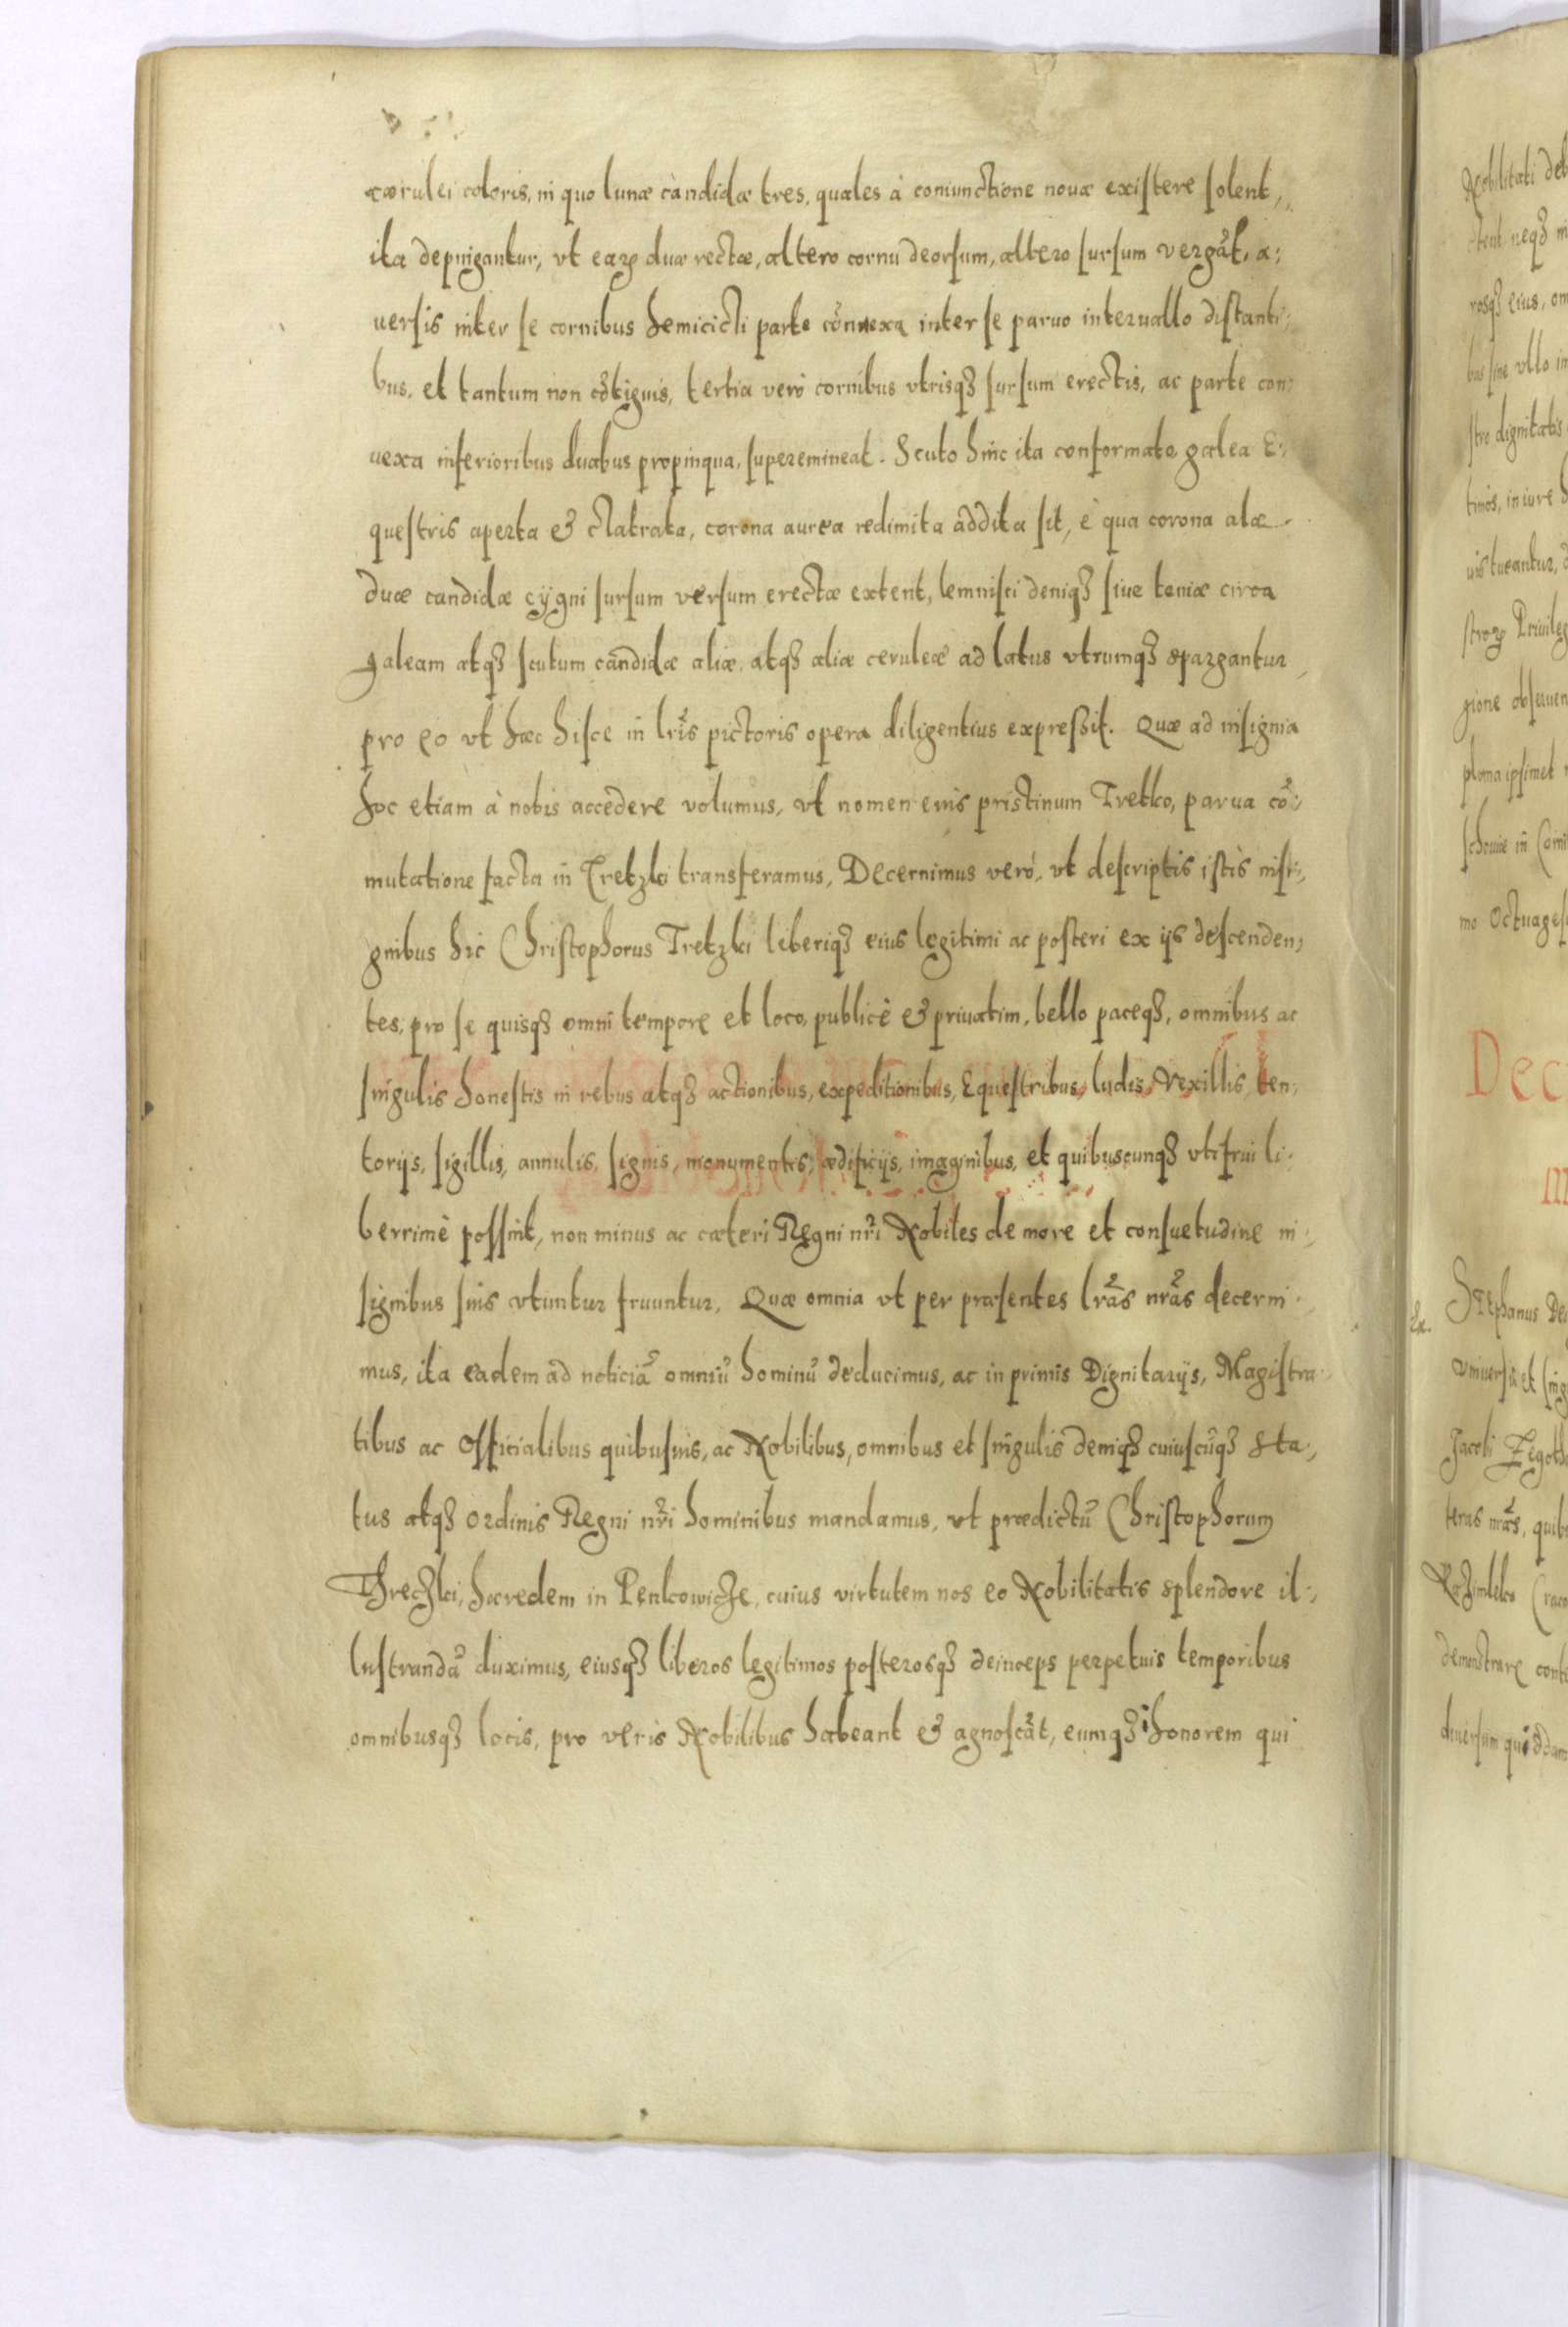 cærulei coloris, in quo lunæ candidæ tres, quales à coniunctione nouæ existere solent,
ita depingantur, vt earꝝ duæ rectæ, altero cornu deorsum, altero sursum vergãt, a:
uersis inter se cornibus hemicicli parte cõnuexa inter se paruo interuallo distanti:
bus, et tantum non cõtiguis, tertia verò cornibus vtrisqꝫ sursum erectis, ac parte con:
uexa inferioribus duabus propinqua, superemineat. Scuto hinc ita conformato galea E:
questris aperta & clatrata, corona aurea redimita addita sit, è qua corona alæ
duæ candidæ cygni sursum versum erectæ extent, lemnisci deniqꝫ siue teniæ circa
galeam atqꝫ scutum candidæ aliæ, atqꝫ aliæ ceruleæ ad latus vtrumqꝫ spargantur,
pro eo vt hæc hisce in lris pictoris opera diligentius expreßit. Quæ ad insignia
hoc etiam à nobis accedere volumus, vt nomen eius pristinum Tretko, parua cõ:
mutatione facta in Tretzki transferamus, Decernimus verò, vt descriptis istis insi:
gnibus hic Christophorus Tretzki liberiqꝫ eius legitimi ac posteri ex ijs descenden:
tes, pro se quisqꝫ omni tempore et loco, publicè & priuatim, bello paceqꝫ, omnibus ac
singulis honestis in rebus atqꝫ actionibus, expeditionibus, Equestribus, ludis, Vexillis, ten:
torijs, sigillis, annulis, signis, monumentis, ædificijs, imaginibus, et quibuscunqꝫ vti frui li:
berrimè possint, non minus ac cæteri Regni nri Nobiles de more et consuetudine in:
signibus suis vtuntur fruuntur, Quæ omnia vt per præsentes lras nras decerni:
mus, ita eadem ad noticiã omniũ hominũ deducimus, ac in primis Dignitarijs, Magistra:
tibus ac Officialibus quibusuis, ac Nobilibus, omnibus et singulis deniqꝫ cuiuscũqꝫ sta:
tus atqꝫ ordinis Regni nri hominibus mandamus, vt prædictũ Christophorum
Threczki, hæredem in Penkowicze, cuius virtutem nos eo Nobilitatis splendore il:
lustrandã duximus, eiusqꝫ liberos legitimos posterosqꝫ deinceps perpetuis temporibus
omnibusqꝫ locis, pro veris Nobilibus habeant & agnoscãt, eumqꝫ i honorem qui
Nobilitati deb
tent neqꝫ
rosqꝫ eius, om
bus siue vllo
stre dignitatis
timos, in iure
uis tueantur,
stroꝝ Priuileg
gione obseruen
ploma ipsimet
mo Octuages
Dec
Stephanus De
vniuersis et sing
Jacobi
teras nras, quib
demonstrare
diuersum quiddam